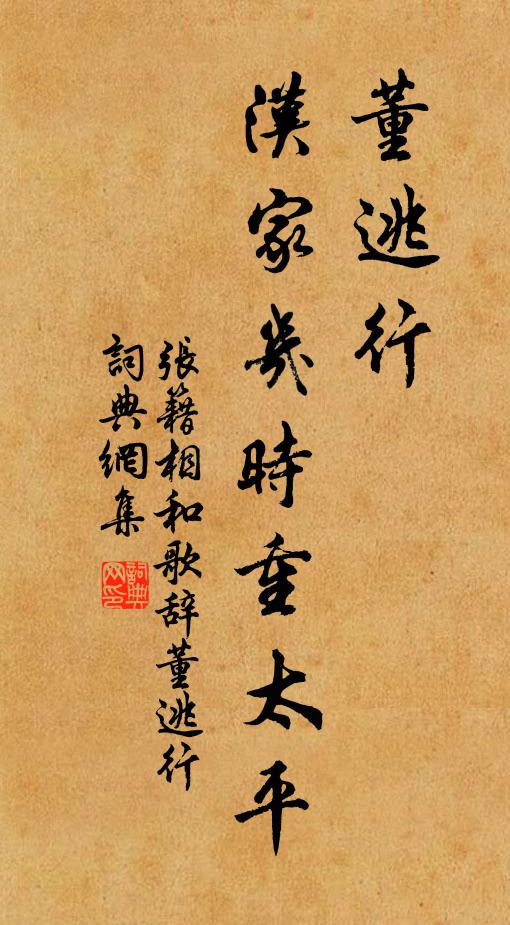 董逃行
漢家幾時重太平
張籍相和歌辞董逃行
詞典網集
詞典
网印